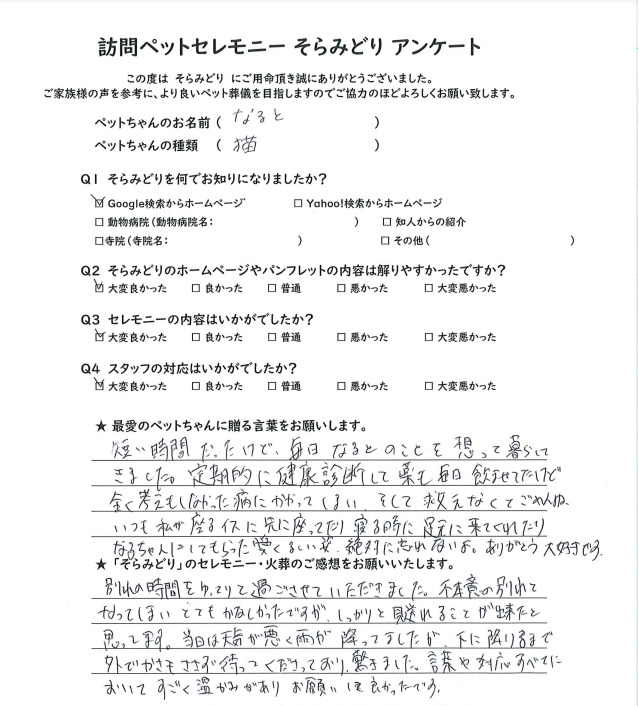 訪問ペットセレモニー そらみどり アンケート
この度は そらみどり にご用命頂き誠にありがとうございました。
ご家族様の声を参考に、より良いペット葬儀を目指しますのでご協力のほどよろしくお願い致します。
ペットちゃんのお名前 ( なると )
ペットちゃんの種類 ( 猫 )
Q1 そらみどりを何でお知りになりましたか?
☑ Google検索からホームページ □ Yahoo!検索からホームページ
□ 動物病院(動物病院名: ) □ 知人からの紹介
□ 寺院(寺院名: ) □ その他( )
Q2 そらみどりのホームページやパンフレットの内容は解りやすかったですか?
☑ 大変良かった □ 良かった □ 普通 □ 悪かった □ 大変悪かった
Q3 セレモニーの内容はいかがでしたか?
☑ 大変良かった □ 良かった □ 普通 □ 悪かった □ 大変悪かった
Q4 スタッフの対応はいかがでしたか?
☑ 大変良かった □ 良かった □ 普通 □ 悪かった □ 大変悪かった
★ 最愛のペットちゃんに贈る言葉をお願いします。
短い時間だったけど、毎日なるとのことを想って暮らして
きました。定期的に健康診断して薬も毎日飲ませてたけど
全く考えもしなかった病にかかってしまい、そして救えなくてごめんね。
いつも私が座るイスに先に座ってたり寝る時に足元に来てくれたり
なるちゃんにしてもらった愛くるしい姿、絶対に忘れないよ。ありがとう 大好きです。
★「そらみどり」のセレモニー・火葬のご感想をお願いいたします。
別れの時間をゆっくりと過ごさせていただきました。不本意の別れで
なってしまい とてもかなしかったですが、しっかりと見送れることが出来たと
思ってます。当日は天気が悪く雨が降ってましたが、下に降りるまで
外でかさもささず待ってくださっており、驚きました。言葉や対応すべてに
おいてすごく温かみがあり お願いして良かったです。